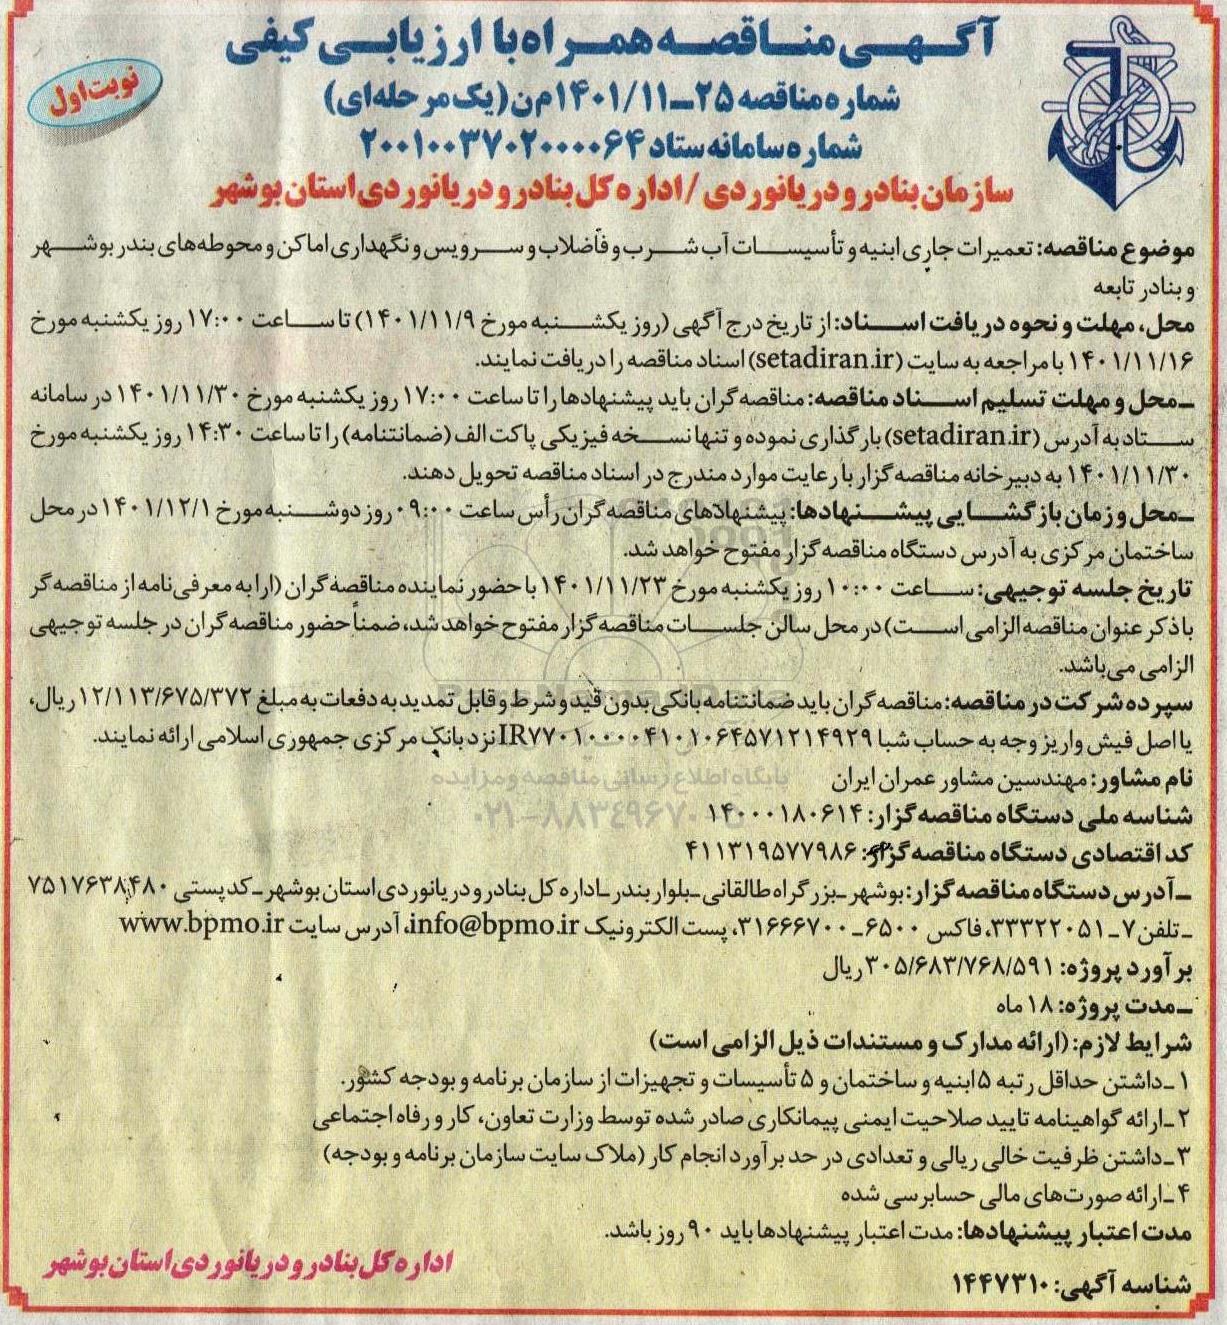 آگهی مناقصه همراه با ارزیابی کیفی
نوبت اول
شماره مناقصه ۲۵-۱۴۰۱/۱۱م‌ن (یک مرحله‌ای)
شماره سامانه ستاد ۲۰۰۱۰۰۳۷۰۲۰۰۰۰۶۴
سازمان بنادر و دریانوردی / اداره کل بنادر و دریانوردی استان بوشهر
موضوع مناقصه: تعمیرات جاری ابنیه و تأسیسات آب شرب و فاضلاب و سرویس و نگهداری اماکن و محوطه‌های بندر بوشهر
و بنادر تابعه
محل، مهلت و نحوه دریافت اسناد: از تاریخ درج آگهی (روز یکشنبه مورخ ۱۴۰۱/۱۱/۹) تا ساعت ۱۷:۰۰ روز یکشنبه مورخ
۱۴۰۱/۱۱/۱۶ با مراجعه به سایت (setadiran.ir) اسناد مناقصه را دریافت نمایند.
ـ محل و مهلت تسلیم اسناد مناقصه: مناقصه گران باید پیشنهادها را تا ساعت ۱۷:۰۰ روز یکشنبه مورخ ۱۴۰۱/۱۱/۳۰ در سامانه
ستاد به آدرس (setadiran.ir) بارگذاری نموده و تنها نسخه فیزیکی پاکت الف (ضمانتنامه) را تا ساعت ۱۴:۳۰ روز یکشنبه مورخ
۱۴۰۱/۱۱/۳۰ به دبیرخانه مناقصه گزار با رعایت موارد مندرج در اسناد مناقصه تحویل دهند.
ـ محل و زمان بازگشایی پیشنهادها: پیشنهادهای مناقصه گران رأس ساعت ۰۹:۰۰ روز دوشنبه مورخ ۱۴۰۱/۱۲/۱ در محل
ساختمان مرکزی به آدرس دستگاه مناقصه گزار مفتوح خواهد شد.
تاریخ جلسه توجیهی: ساعت ۱۰:۰۰ روز یکشنبه مورخ ۱۴۰۱/۱۱/۲۳ با حضور نماینده مناقصه گران (ارا به معرفی نامه از مناقصه گر
با ذکر عنوان مناقصه الزامی است) در محل سالن جلسات مناقصه گزار مفتوح خواهد شد، ضمناً حضور مناقصه گران در جلسه توجیهی
الزامی می‌باشد.
سپرده شرکت در مناقصه: مناقصه گران باید ضمانتنامه بانکی بدون قید و شرط و قابل تمدید به دفعات به مبلغ ۱۲/۱۱۳/۶۷۵/۳۷۲ ریال،
یا اصل فیش واریز وجه به حساب شبا IR۷۷۰۱۰۰۰۰۴۱۰۱۰۶۴۵۷۱۲۱۴۹۲۹ نزد بانک مرکزی جمهوری اسلامی ارائه نمایند.
پایگاه اطلاع رسانی مناقصه و مزایده
نام مشاور: مهندسین مشاور عمران ایران
۰۲۱-۸۸۳۴۹۶۷۰
شناسه ملی دستگاه مناقصه گزار: ۱۴۰۰۰۱۸۰۶۱۴
کد اقتصادی دستگاه مناقصه گزار: ۴۱۱۳۱۹۵۷۷۹۸۶
ـ آدرس دستگاه مناقصه گزار: بوشهر ـ بزرگراه طالقانی ـ بلوار بندر ـ اداره کل بنادر و دریانوردی استان بوشهر ـ کد پستی ۷۵۱۷۶۳۸۴۸۰
ـ تلفن ۷ـ۳۳۳۲۲۰۵۱، فاکس ۶۵۰۰ـ۳۱۶۶۶۷۰۰، پست الکترونیک info@bpmo.ir، آدرس سایت www.bpmo.ir
برآورد پروژه: ۳۰۵/۶۸۳/۷۶۸/۵۹۱ ریال
ـ مدت پروژه: ۱۸ ماه
شرایط لازم: (ارائه مدارک و مستندات ذیل الزامی است)
۱ـ داشتن حداقل رتبه ۵ ابنیه و ساختمان و ۵ تأسیسات و تجهیزات از سازمان برنامه و بودجه کشور.
۲ـ ارائه گواهینامه تایید صلاحیت ایمنی پیمانکاری صادر شده توسط وزارت تعاون، کار و رفاه اجتماعی
۳ـ داشتن ظرفیت خالی ریالی و تعدادی در حد برآورد انجام کار (ملاک سایت سازمان برنامه و بودجه)
۴ـ ارائه صورت‌های مالی حسابرسی شده
مدت اعتبار پیشنهادها: مدت اعتبار پیشنهادها باید ۹۰ روز باشد.
اداره کل بنادر و دریانوردی استان بوشهر
شناسه آگهی: ۱۴۴۷۳۱۰